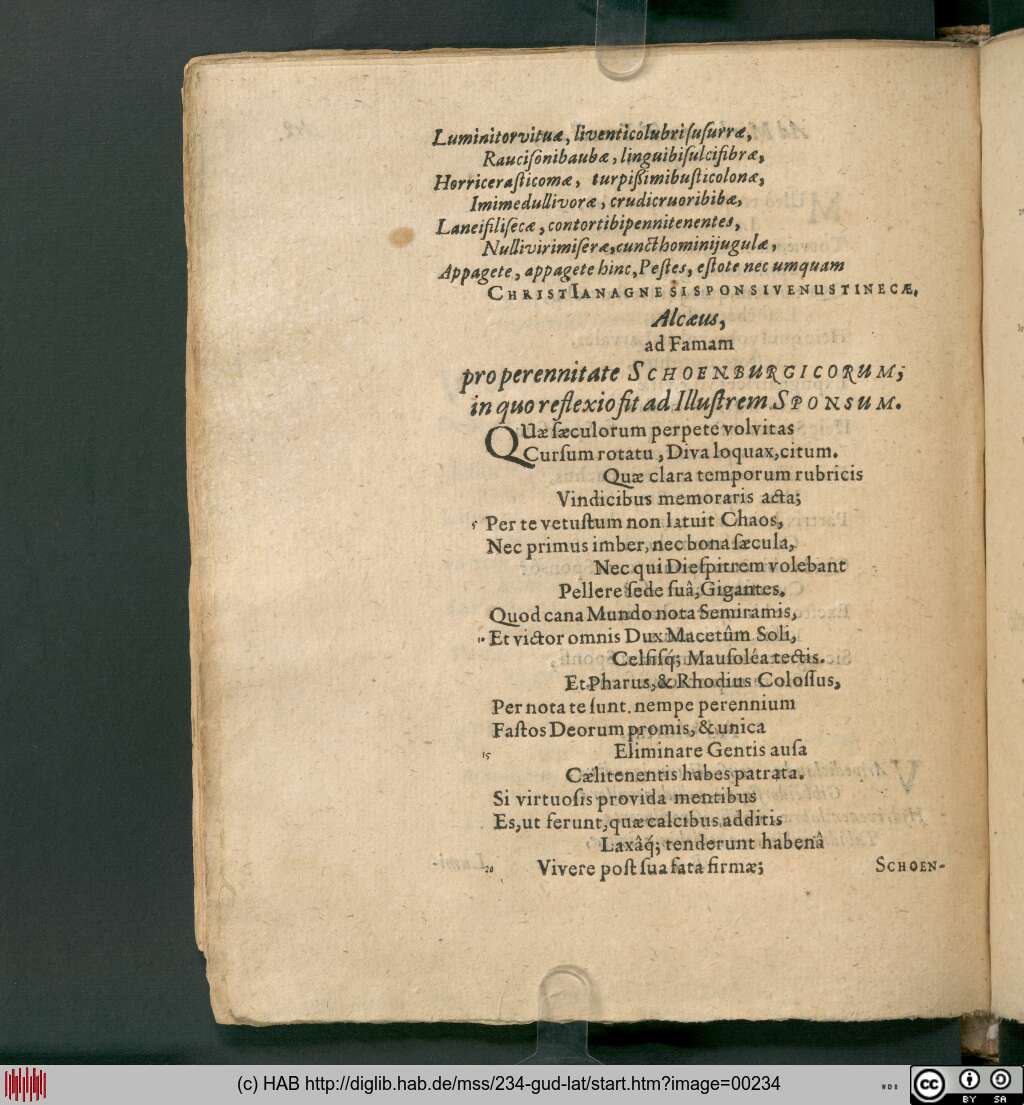 Luminitorvituæ, liventicolubriſuſurræ,
Rauciſonibaubæ, linguibiſulciſibræ,
Horriceraſticomæ, turpißimibuſticolonæ,
Imimedullivoræ, crudicruoribibæ,
Laneifiliſecæ, contortibipennitenentes,
Nullivirimiſeræ, cuncthominijugulæ,
Appagete, appagete hinc, Peſtes, eſtote nec umquam
CHRISTIANAGNESISPONSIVENUSTINECÆ.
Alcæus,
ad Famam
pro perennitate SCHOENBURGICORUM;
in quo reflexio fit ad Illuſtrem SPONSUM.
QUæ ſæculorum perpete volvitas
Curſum rotatu, Diva loquax, citum.
Quæ clara temporum rubricis
Vindicibus memoraris acta;
5 Per te vetuſtum non latuit Chaos,
Nec primus imber, nec bona ſæcula,
Nec qui Dieſpitrem volebant
Pellere ſede ſuâ, Gigantes.
Quod cana Mundo nota Semiramis,
10 Et victor omnis Dux Macetûm Soli,
Celſiſq́; Mauſoléa tectis.
Et Pharus, & Rhodius Coloſſus,
Per nota te ſunt. nempe perennium
Faſtos Deorum promis, & unica
15 Eliminare Gentis auſa
Cælitenentis habes patrata.
Si virtuoſis provida mentibus
Es, ut ferunt, quæ calcibus additis
Laxâq́; tenderunt habenâ
20 Vivere poſt ſua fata firmæ;
SCHOEN-
(c) HAB http://diglib.hab.de/mss/234-gud-lat/start.htm?image=00234
WDB
cc
BY SA